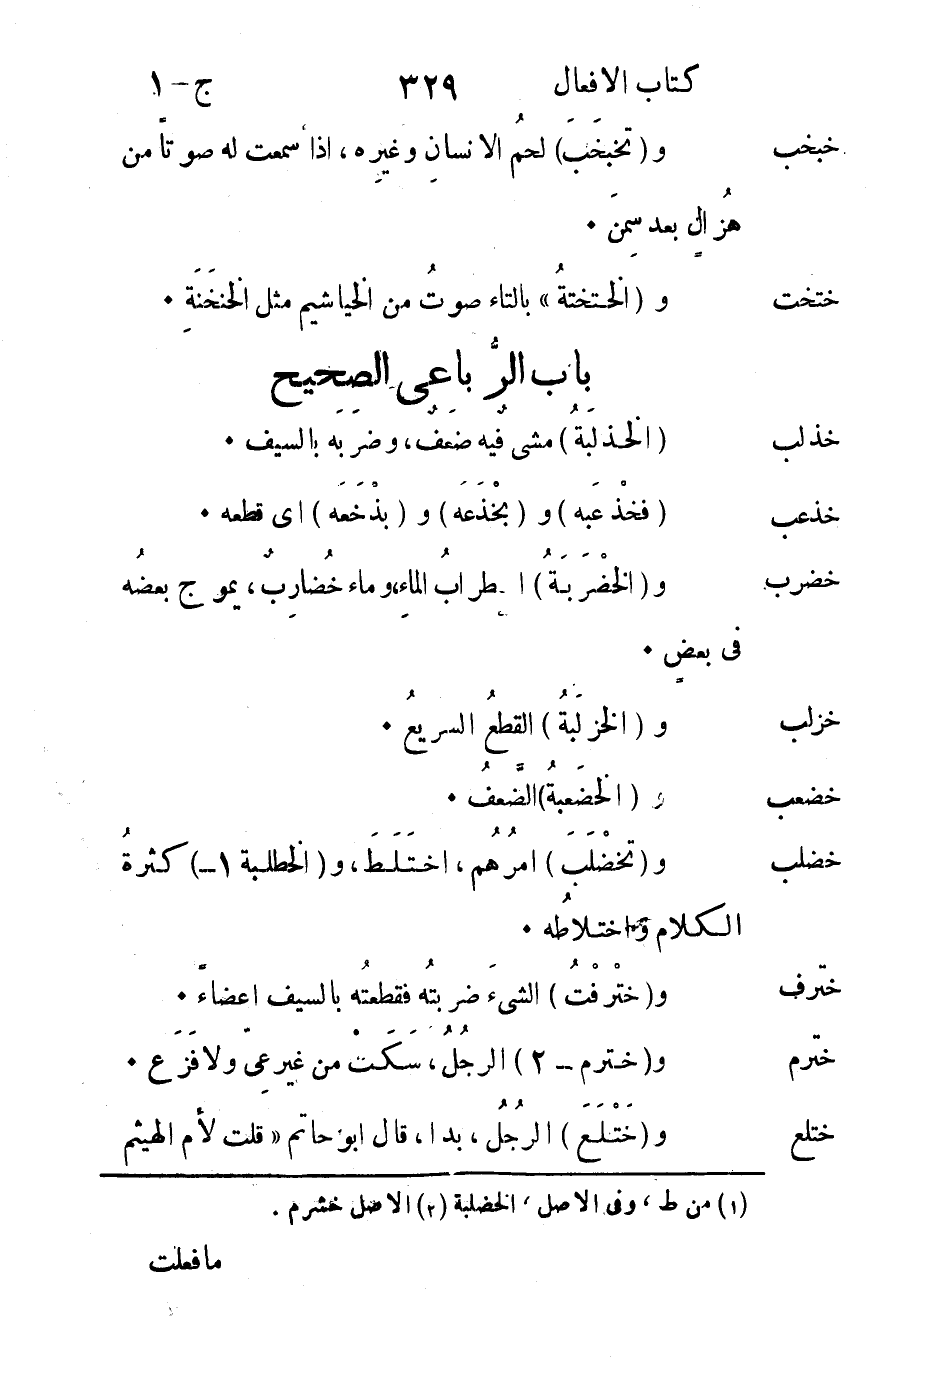 كتاب الافعال ٣٢٩ ج – ١
خبخب و (تَخَبخَبَ) لحمُ الانسانِ وغيرِه، اذا سمعت له صوتاً من
هُزالٍ بعد سِمنَ ٠
ختخت و (الخـتختةُ» بالتاء صوتُ من الخياشيم مثل الخنخَنَةِ ٠
باب الرُّباعى الصَحيح
خذلب (الخذلَبَةُ) مشى فيه ضعَفٌ، وضرَبَه بالسيف ٠
خذعب (فخذْعَبَه) و (بَخْذَعَه) و (بذْخَعَه) اى قطعه ٠
خضرب و(الخَضْرَبَةُ) اضطرابُ الماءِ، وماء خُضارِبٌ، يموج بعضُه
فى بعضٍ ٠
خزلب و (الخزلَبَةُ) القطعُ السريعُ ٠
خضعب و (الخضَعبةُ) الضَّعفُ ٠
خضلب و(تَخَضْلَبَ) امرُهُم، اختَـلَـطَ، و(الخطلبة ١ـ) كثرةُ
الكلام واختلاطُه ٠
خترف و(ختْرْفتُ) الشىءَ ضربتُه فقطعتُه بالسيف اعضاءً ٠
خترم و(خـترم – ٢) الرجُلُ، سَكَتَ من غيرِ عىّ ولا فَزَع ٠
ختلع و(خَتْـلَـعَ) الرجُلُ، بدا، قال ابوحاتم « قلت لأم الهيثم
(١) من ط، وفى الاصل، الخضلبة (٢) الاصل خشرم .
ما فعلت